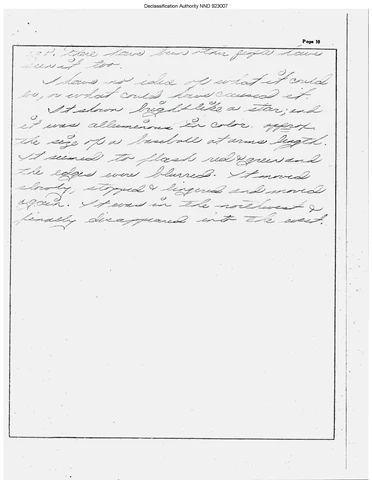 Declassification Authority NND 923007
Page 10
not. there have been other people have
seen it too.
I have no idea of what it could
be, or what could have caused it
It shown bright like a star; and
it was alluminous in color. approx
the size of a baseball at arms length.
It seemed to flash red & green and
the edges were blurred. It moved
slowly, stopped & lingered and moved
again. It was in the northwest &
finally disappeared into the west.